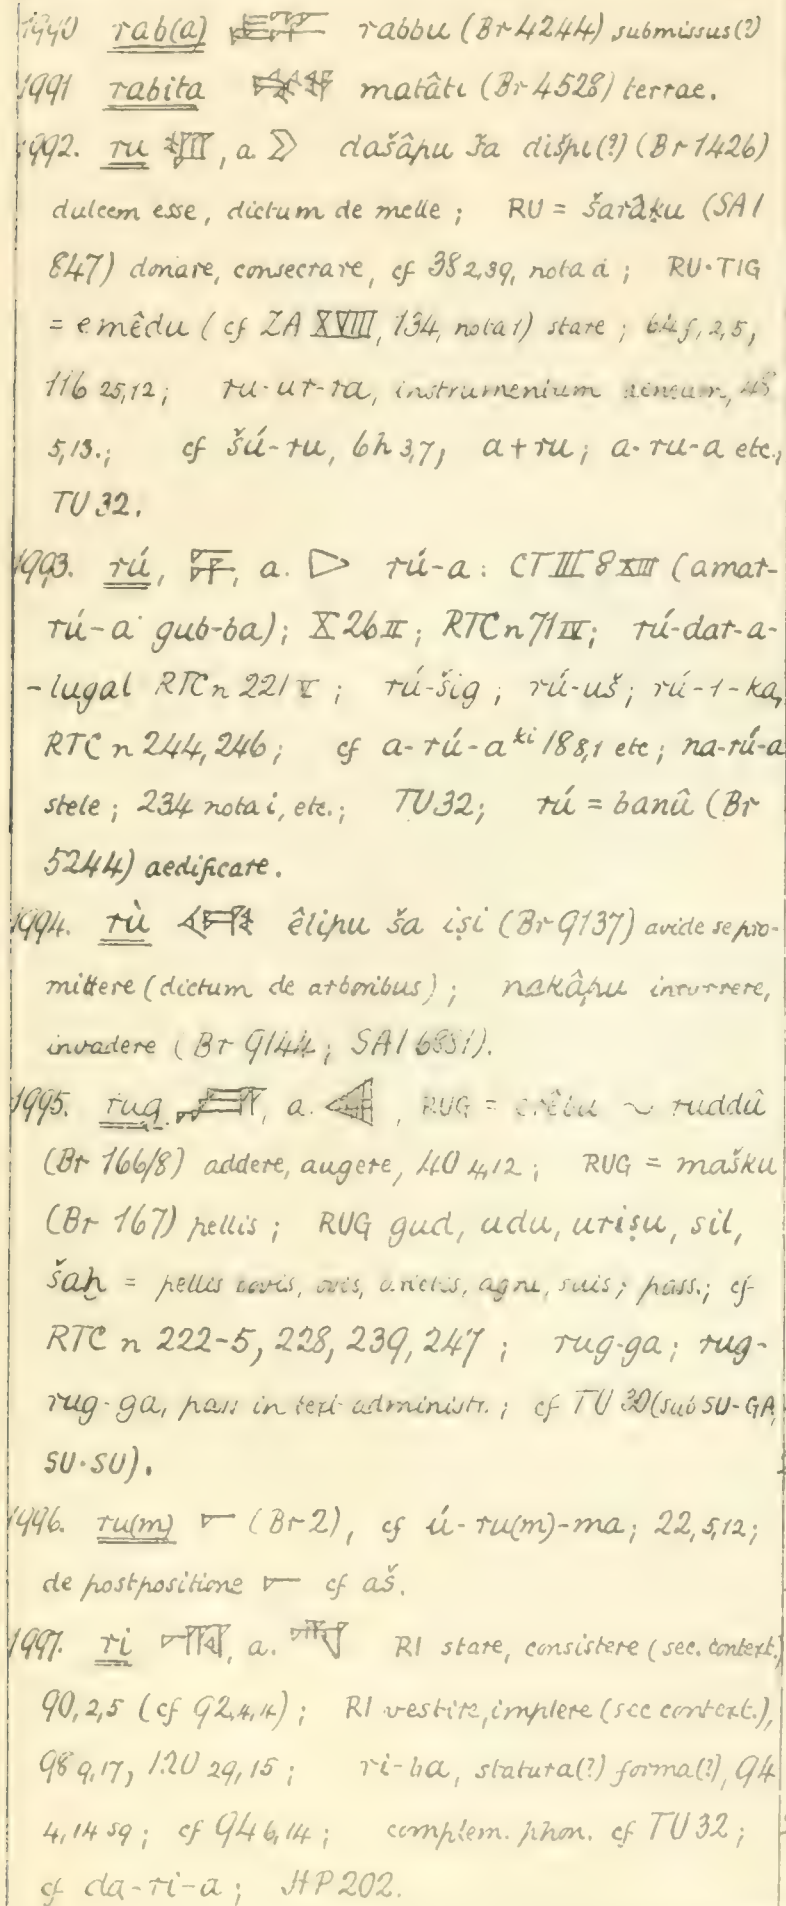 1990 rab(a) rabbu (Br 4244) submissus(?)
1991 rabita matâti (Br 4528) terrae.
1992. ru , a. dašâpu ša dišpi(?) (Br 1426)
dulcem esse, dictum de melle ; RU = šarâḳu (SAI
847) donare, consecrare, cf 38 2,39, nota d ; RU·TIG
= emêdu (cf ZA XVIII, 134, nota 1) stare ; 64 f, 2,5,
116 25,12 ; ru-ur-ra, instrumentum aeneum, 48
5,13.; cf šú-ru, 6h 3,7, a+ru ; a-ru-a etc.,
TU 32.
1993. rú, , a. rú-a : CT III 8 XIII (amar-
rú-a gub-ba) ; X 26 II ; RTC n 71 IV ; rú-dar-a-
-lugal RTC n 221 V ; rú-šig ; rú-uš ; rú-1-ka,
RTC n 244, 246 ; cf a-rú-a ki 18 8,1 etc ; na-rú-a
stele ; 234 nota i, etc.; TU 32 ; rú = banû (Br
5244) aedificare.
1994. rù êlipu ša iṣi (Br 9137) avide se pro-
mittere (dictum de arboribus) ; nakâpu incurrere,
invadere (Br 9144 ; SAI 6881).
1995. rug , a. , RUG = erêbu ~ ruddû
(Br 166/8) addere, augere, 40 4,12 ; RUG = mašku
(Br 167) pellis ; RUG gud, udu, uriṣu, sil,
šaḫ = pellis bovis, ovis, arietis, agni, suis ; pass.; cf
RTC n 222-5, 228, 239, 247 ; rug-ga ; rug-
rug-ga, pass in text administr. ; cf TU 30 (sub SU-GA,
SU·SU).
1996. ru(m) (Br 2), cf ú-ru(m)-ma ; 22, 5,12 ;
de postpositione cf aš.
1997. ri , a. RI stare, consistere (sec. context.)
90, 2,5 (cf 92,4,11) ; RI vestire, implere (sec context.),
98 9,17, 120 29,15 ; ri-ba, statura(?) forma(?), 94
4,14 sq ; cf 94 6,14 ; complem. phon. cf TU 32 ;
cf da-ri-a ; HP 202.